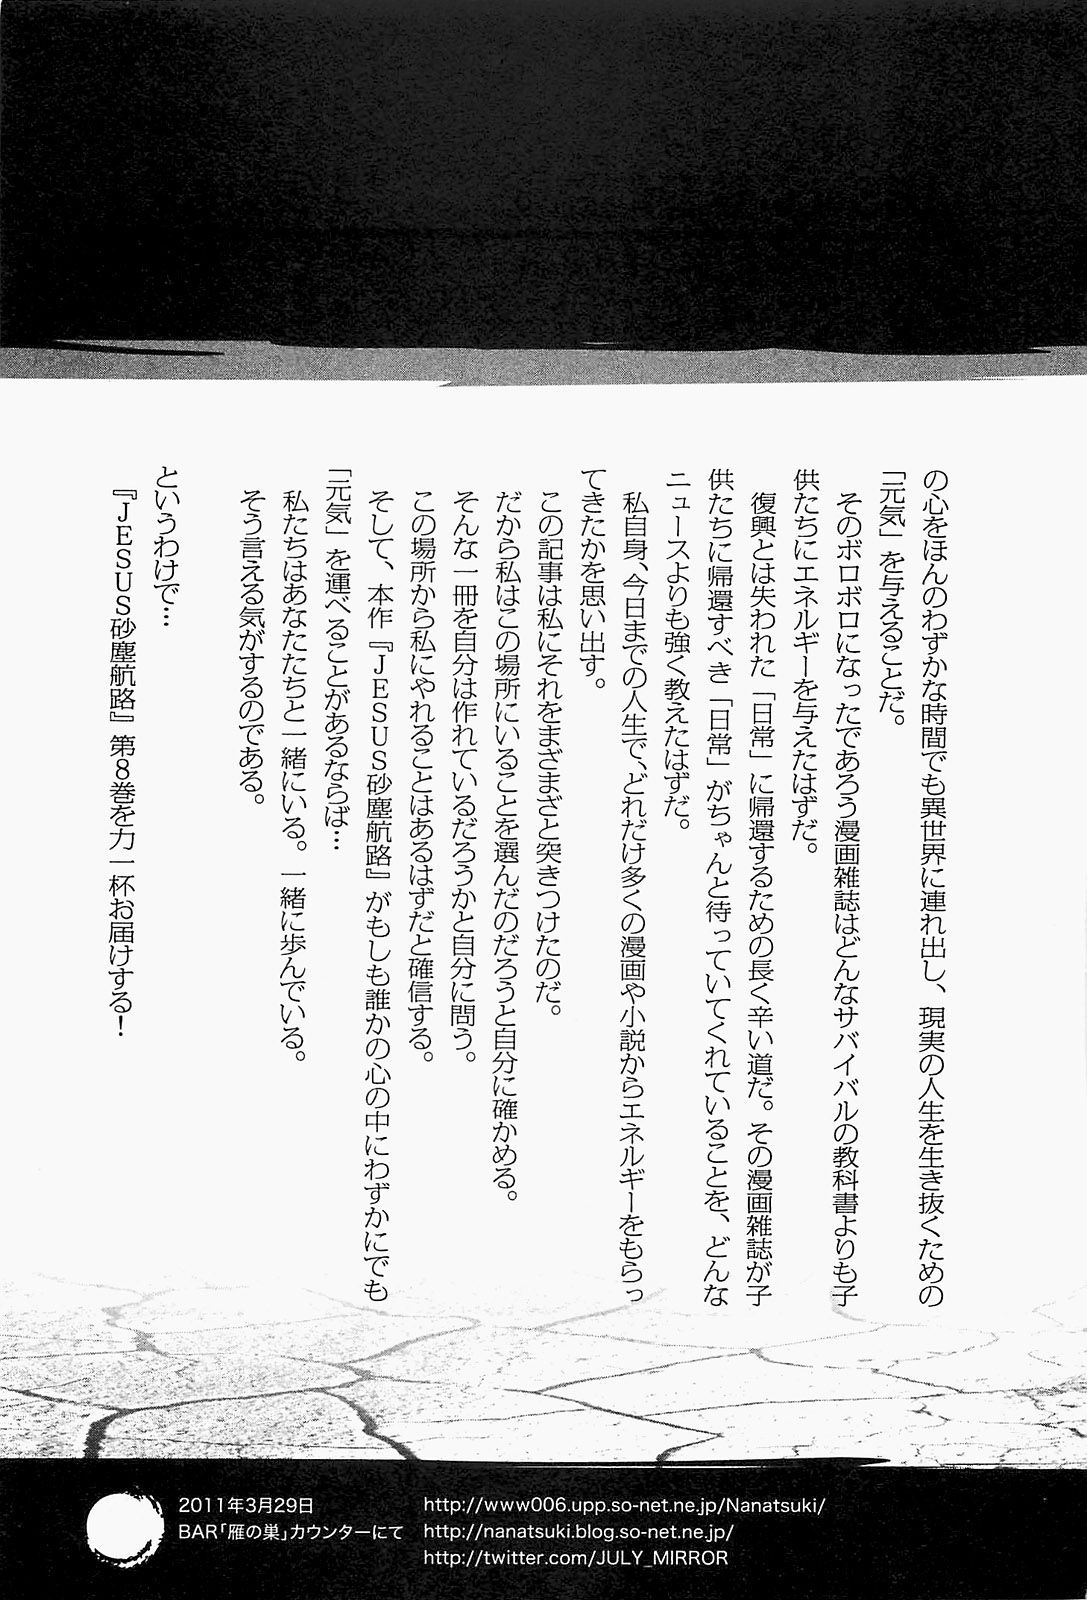 の心をほんのわずかな時間でも異世界に連れ出し、現実の人生を生き抜くための
「元気」を与えることだ。
そのボロボロになったであろう漫画雑誌はどんなサバイバルの教科書よりも子
供たちにエネルギーを与えたはずだ。
復興とは失われた「日常」に帰還するための長く辛い道だ。その漫画雑誌が子
供たちに帰還すべき「日常」がちゃんと待っていてくれていることを、どんな
ニュースよりも強く教えたはずだ。
私自身、今日までの人生で、どれだけ多くの漫画や小説からエネルギーをもらっ
てきたかを思い出す。
この記事は私にそれをまざまざと突きつけたのだ。
だから私はこの場所にいることを選んだのだろうと自分に確かめる。
そんな一冊を自分は作れているだろうかと自分に問う。
この場所から私にやれることはあるはずだと確信する。
そして、本作『JESUS砂塵航路』がもしも誰かの心の中にわずかにでも
「元気」を運べることがあるならば…
私たちはあなたたちと一緒にいる。一緒に歩んでいる。
そう言える気がするのである。
というわけで…
『JESUS砂塵航路』第8巻を力一杯お届けする！
2011年3月29日
BAR「雁の巣」カウンターにて
http://www006.upp.so-net.ne.jp/Nanatsuki/
http://nanatsuki.blog.so-net.ne.jp/
http://twitter.com/JULY_MIRROR